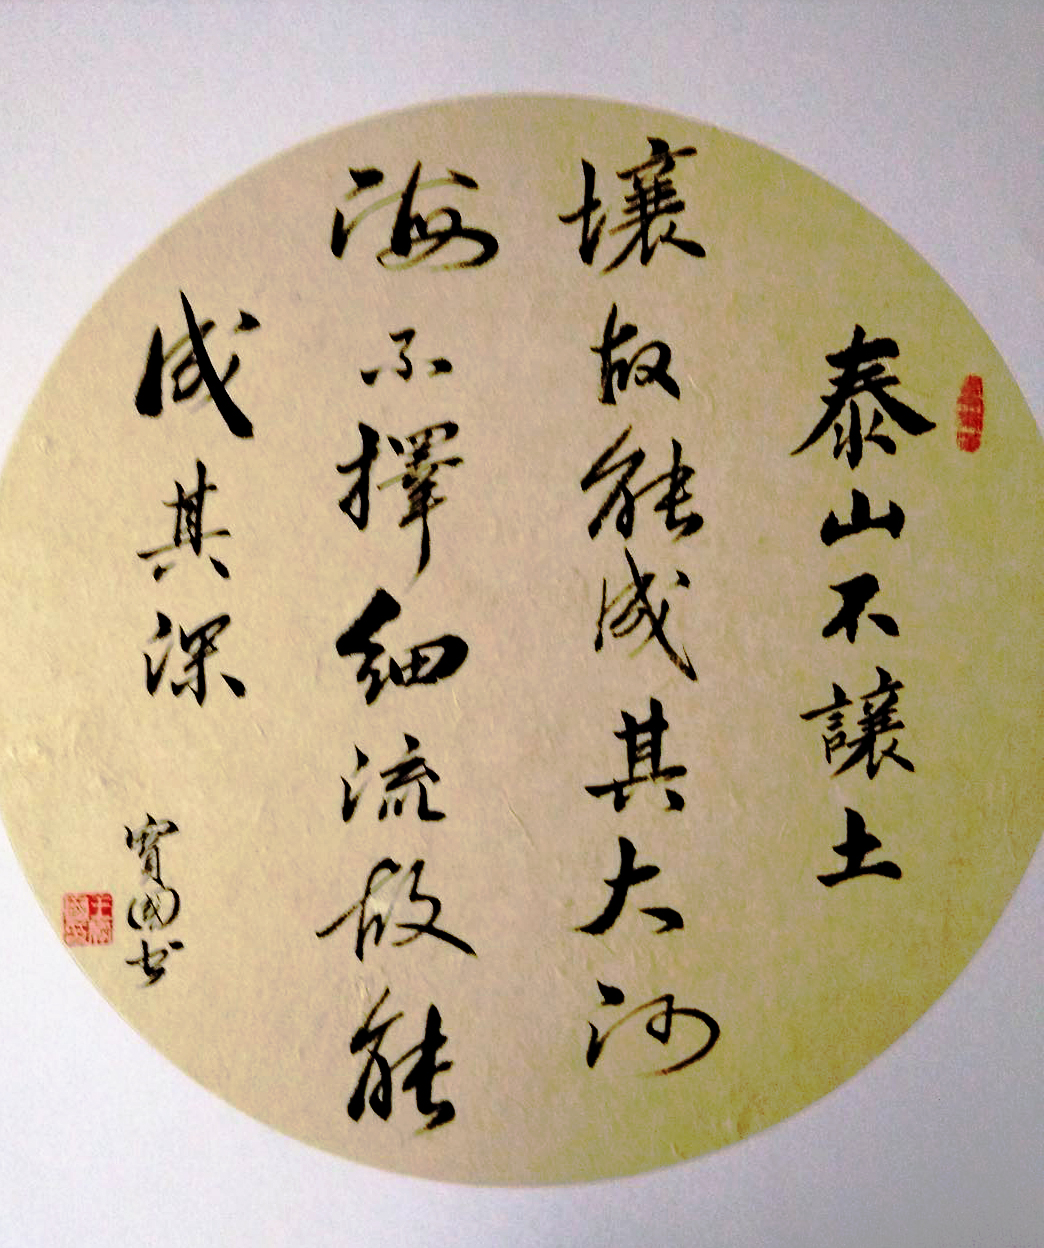 泰山不讓土
壤故能成其大河
海不擇細流故能
成其深
寶國书